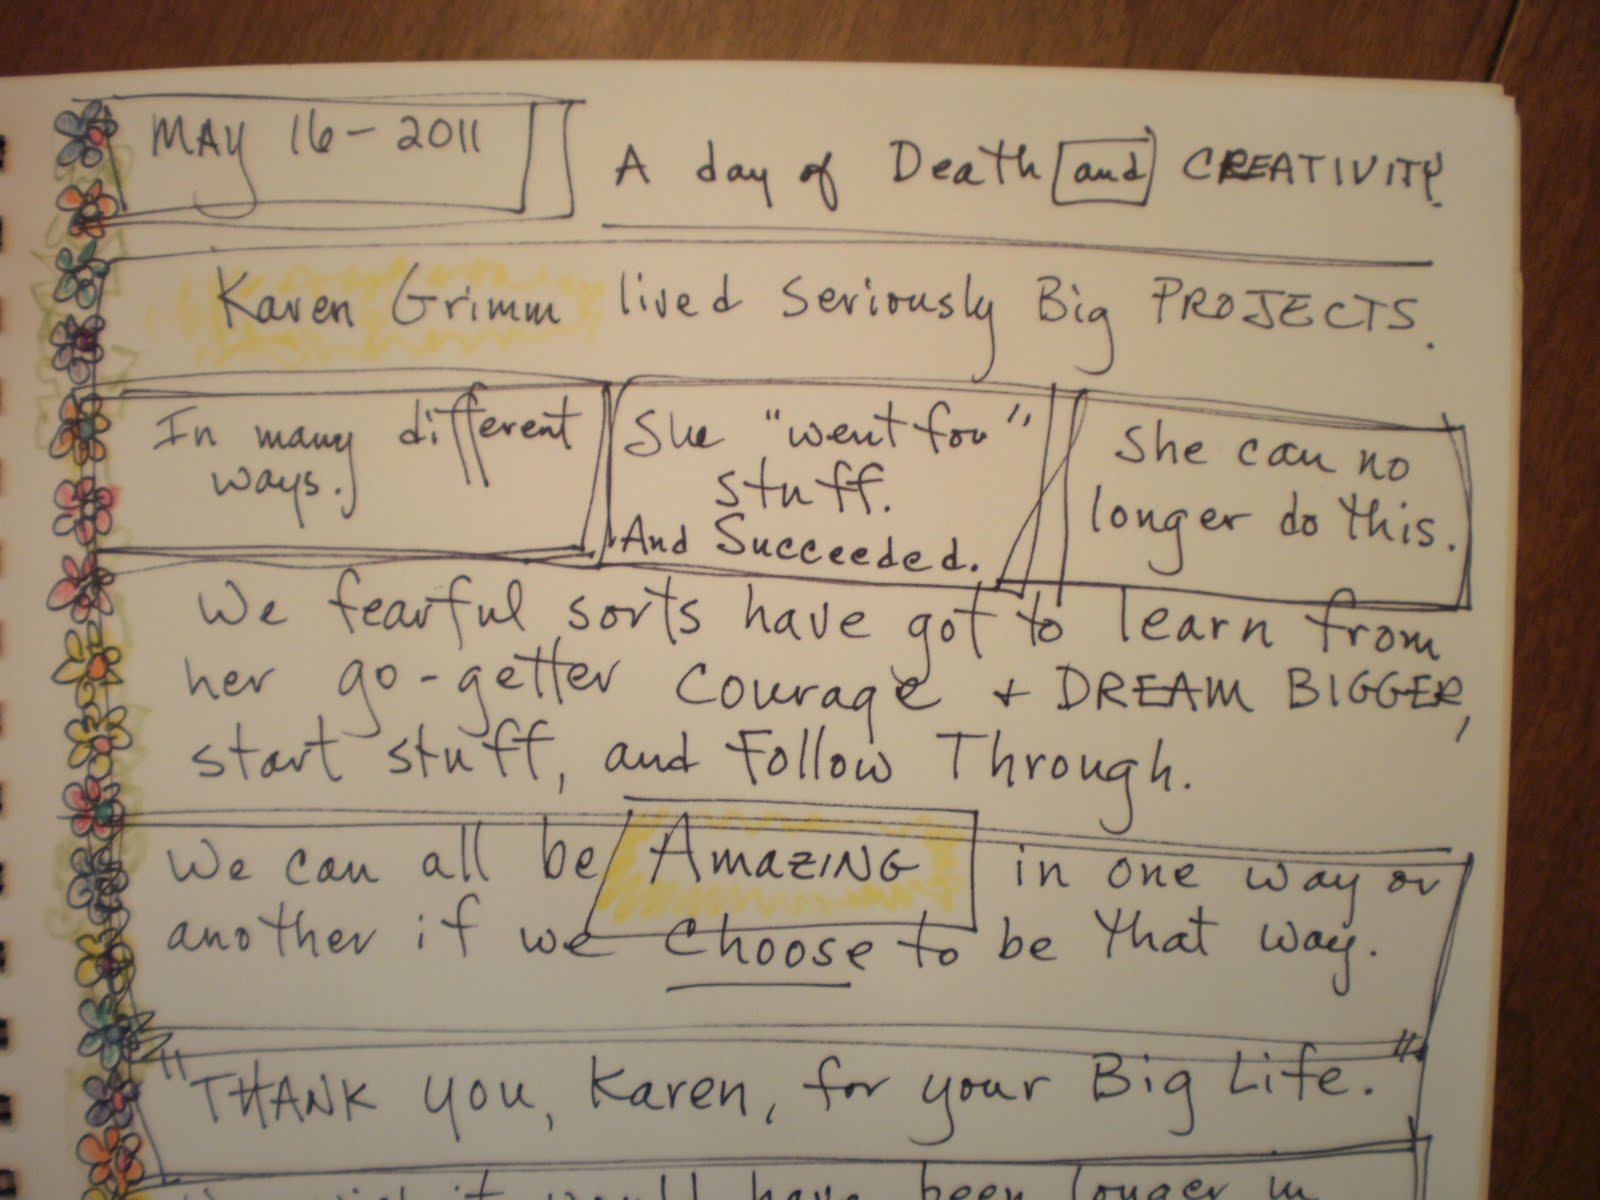 MAY 16 - 2011
A day of Death and CREATIVITY.
Karen Grimm lived seriously Big PROJECTS.
In many different
ways.
She "went for"
stuff.
And Succeeded.
She can no
longer do this.
We fearful sorts have got to learn from
her go-getter courage + DREAM BIGGER,
start stuff, and Follow Through.
We can all be AMAZING in one way or
another if we choose to be that way.
"THANK you, Karen, for your Big Life."
it would have been longer in